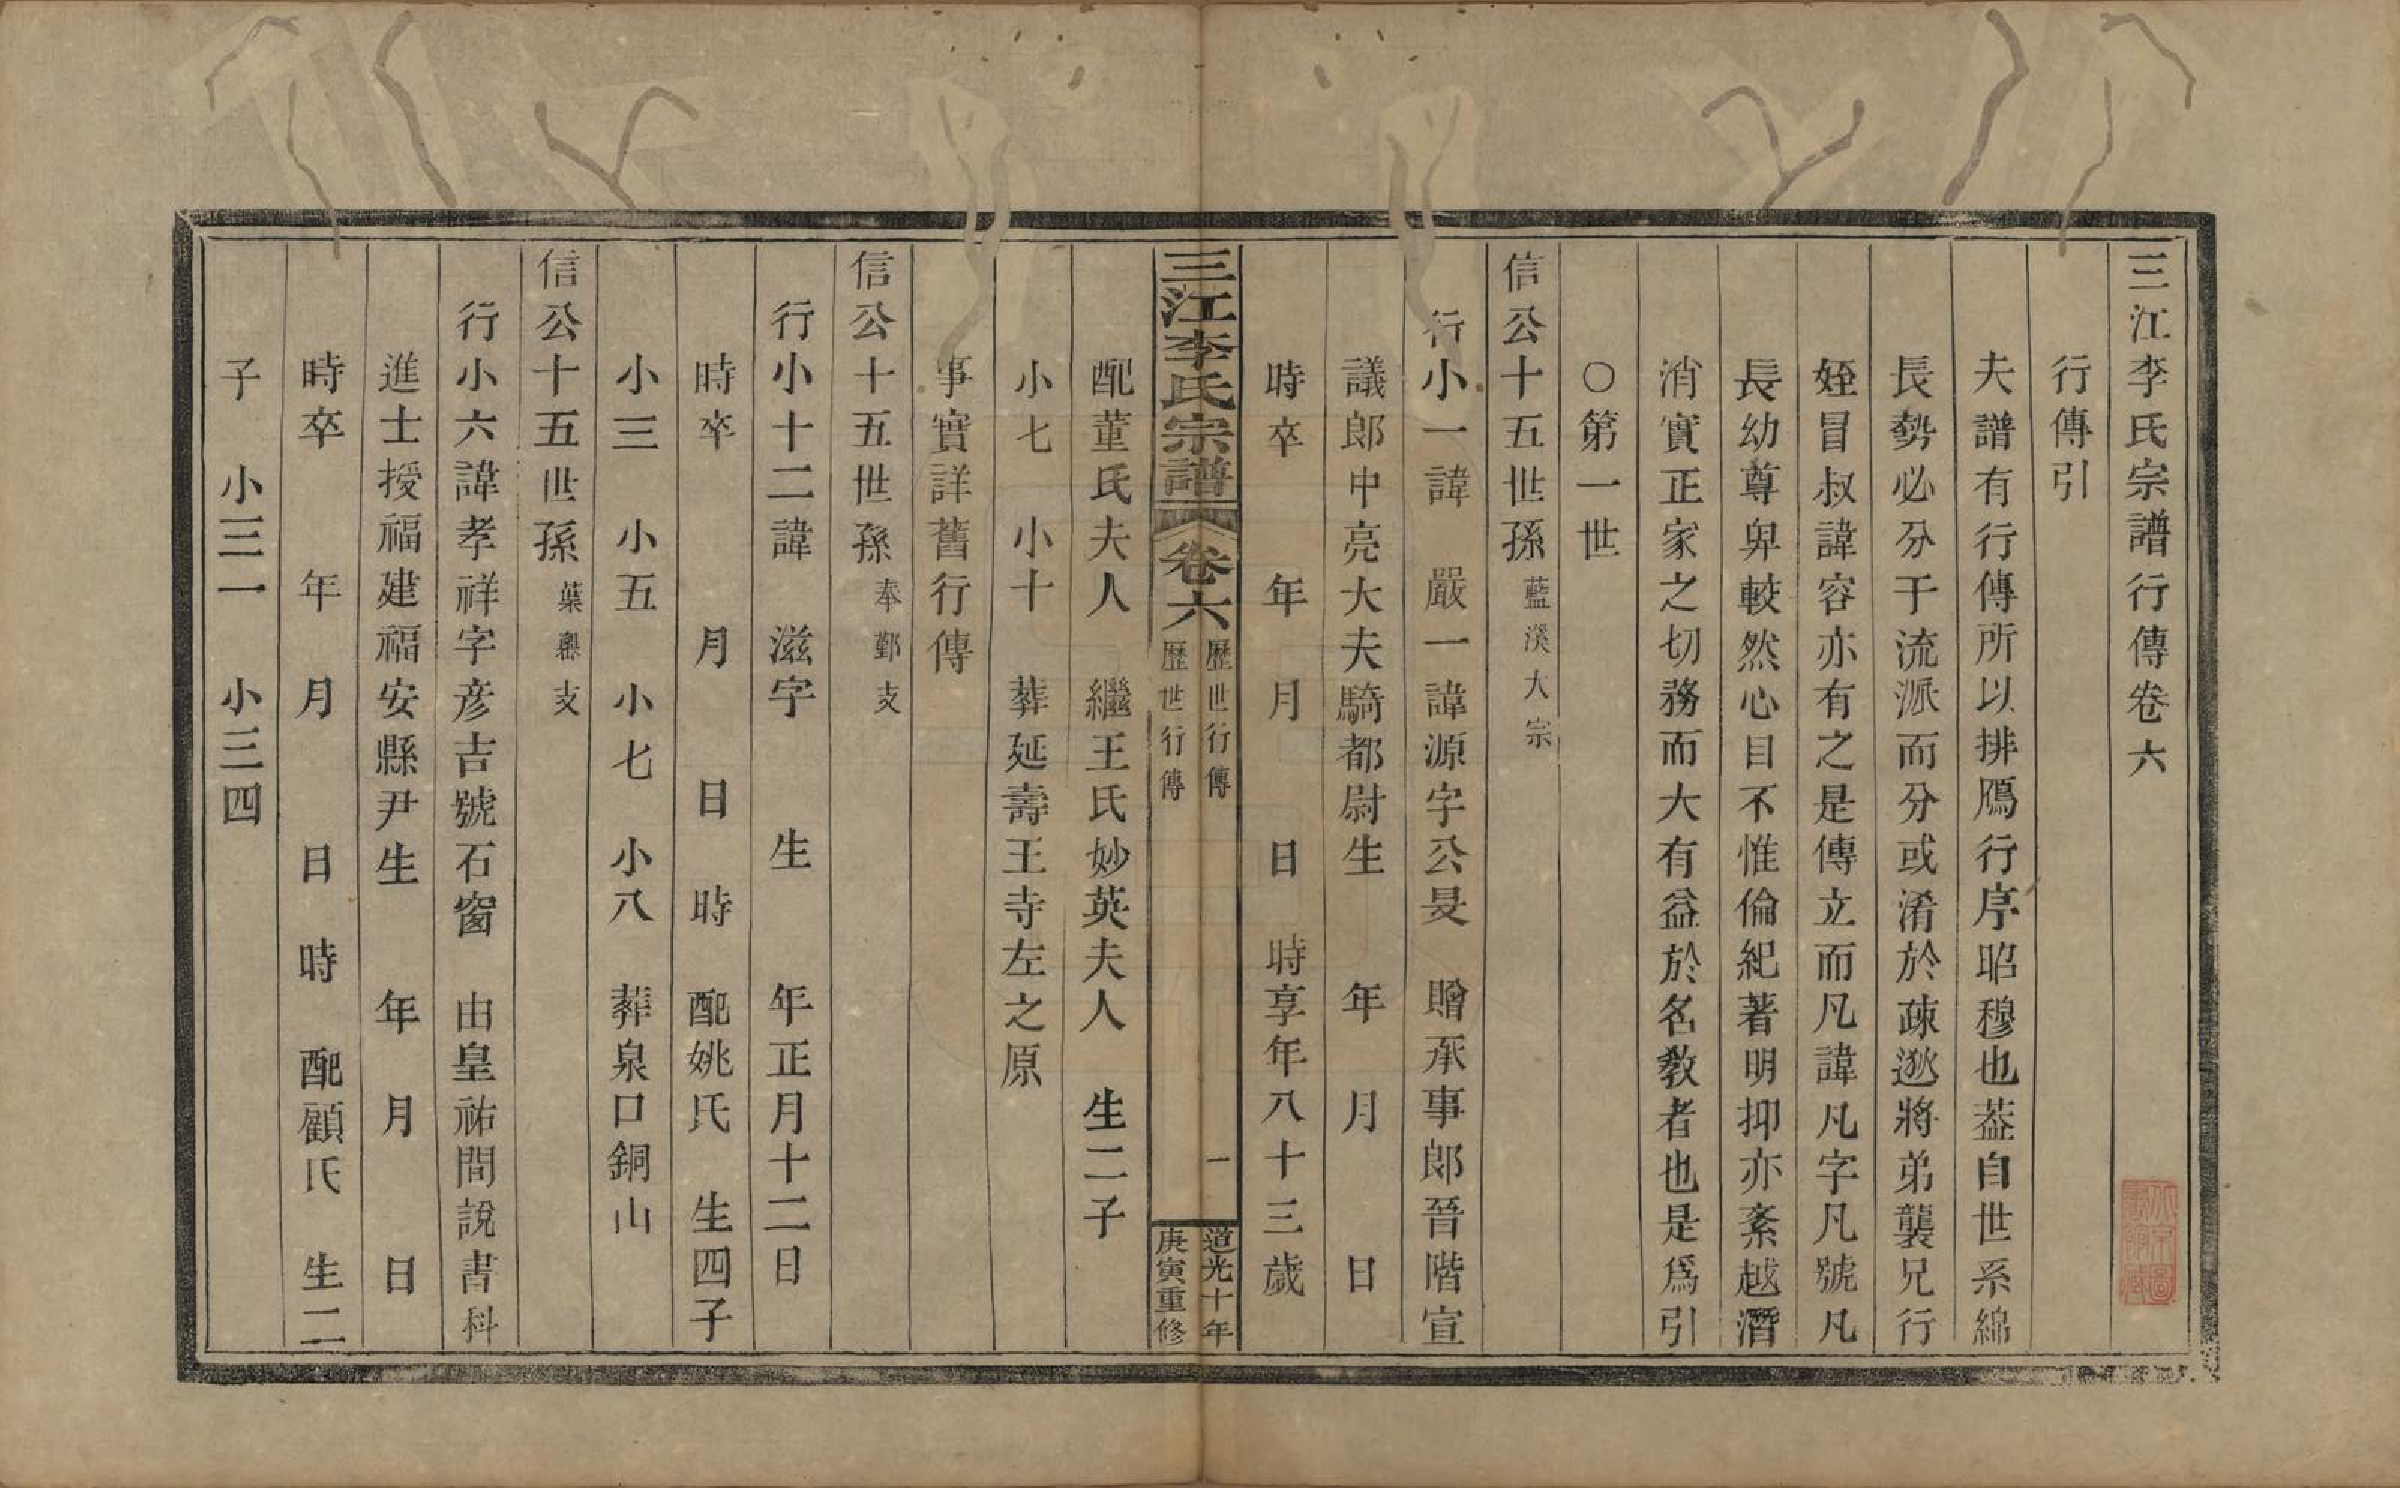 三江李氏宗譜行傳卷六
行傳引
夫譜有行傳所以排鴈行序昭穆也葢自世系綿
長勢必分于流派而分或淆於疎逖將弟襲兄行
姪冒叔諱容亦有之是傳立而凡諱凡字凡號凡
長幼尊卑較然心目不惟倫紀著明抑亦紊越潛
消實正家之切務而大有益於名教者也是爲引
○第一世
信公十五世孫 藍溪大宗
行小一諱 嚴一諱源字公旻 贈承事郎晉階宣
議郎中亮大夫騎都尉生 年 月 日
時卒 年 月 日 時享年八十三歲
三江李氏宗譜 卷六 歷世行傳 歷世行傳 一 道光十年 庚寅重修
配董氏夫人 繼王氏妙英夫人 生二子
小七 小十 葬延壽王寺左之原
事實詳舊行傳
信公十五世孫 奉鄞支
行小十二諱 滋字 生 年正月十二日
時卒 月 日 時 配姚氏 生四子
小三 小五 小七 小八 葬泉口銅山
信公十五世孫 葉支
行小六諱孝祥字彦吉號石窗 由皇祐間說書科
進士授福建福安縣尹生 年 月 日
時卒 年 月 日 時 配顧氏 生二
子 小三一 小三四